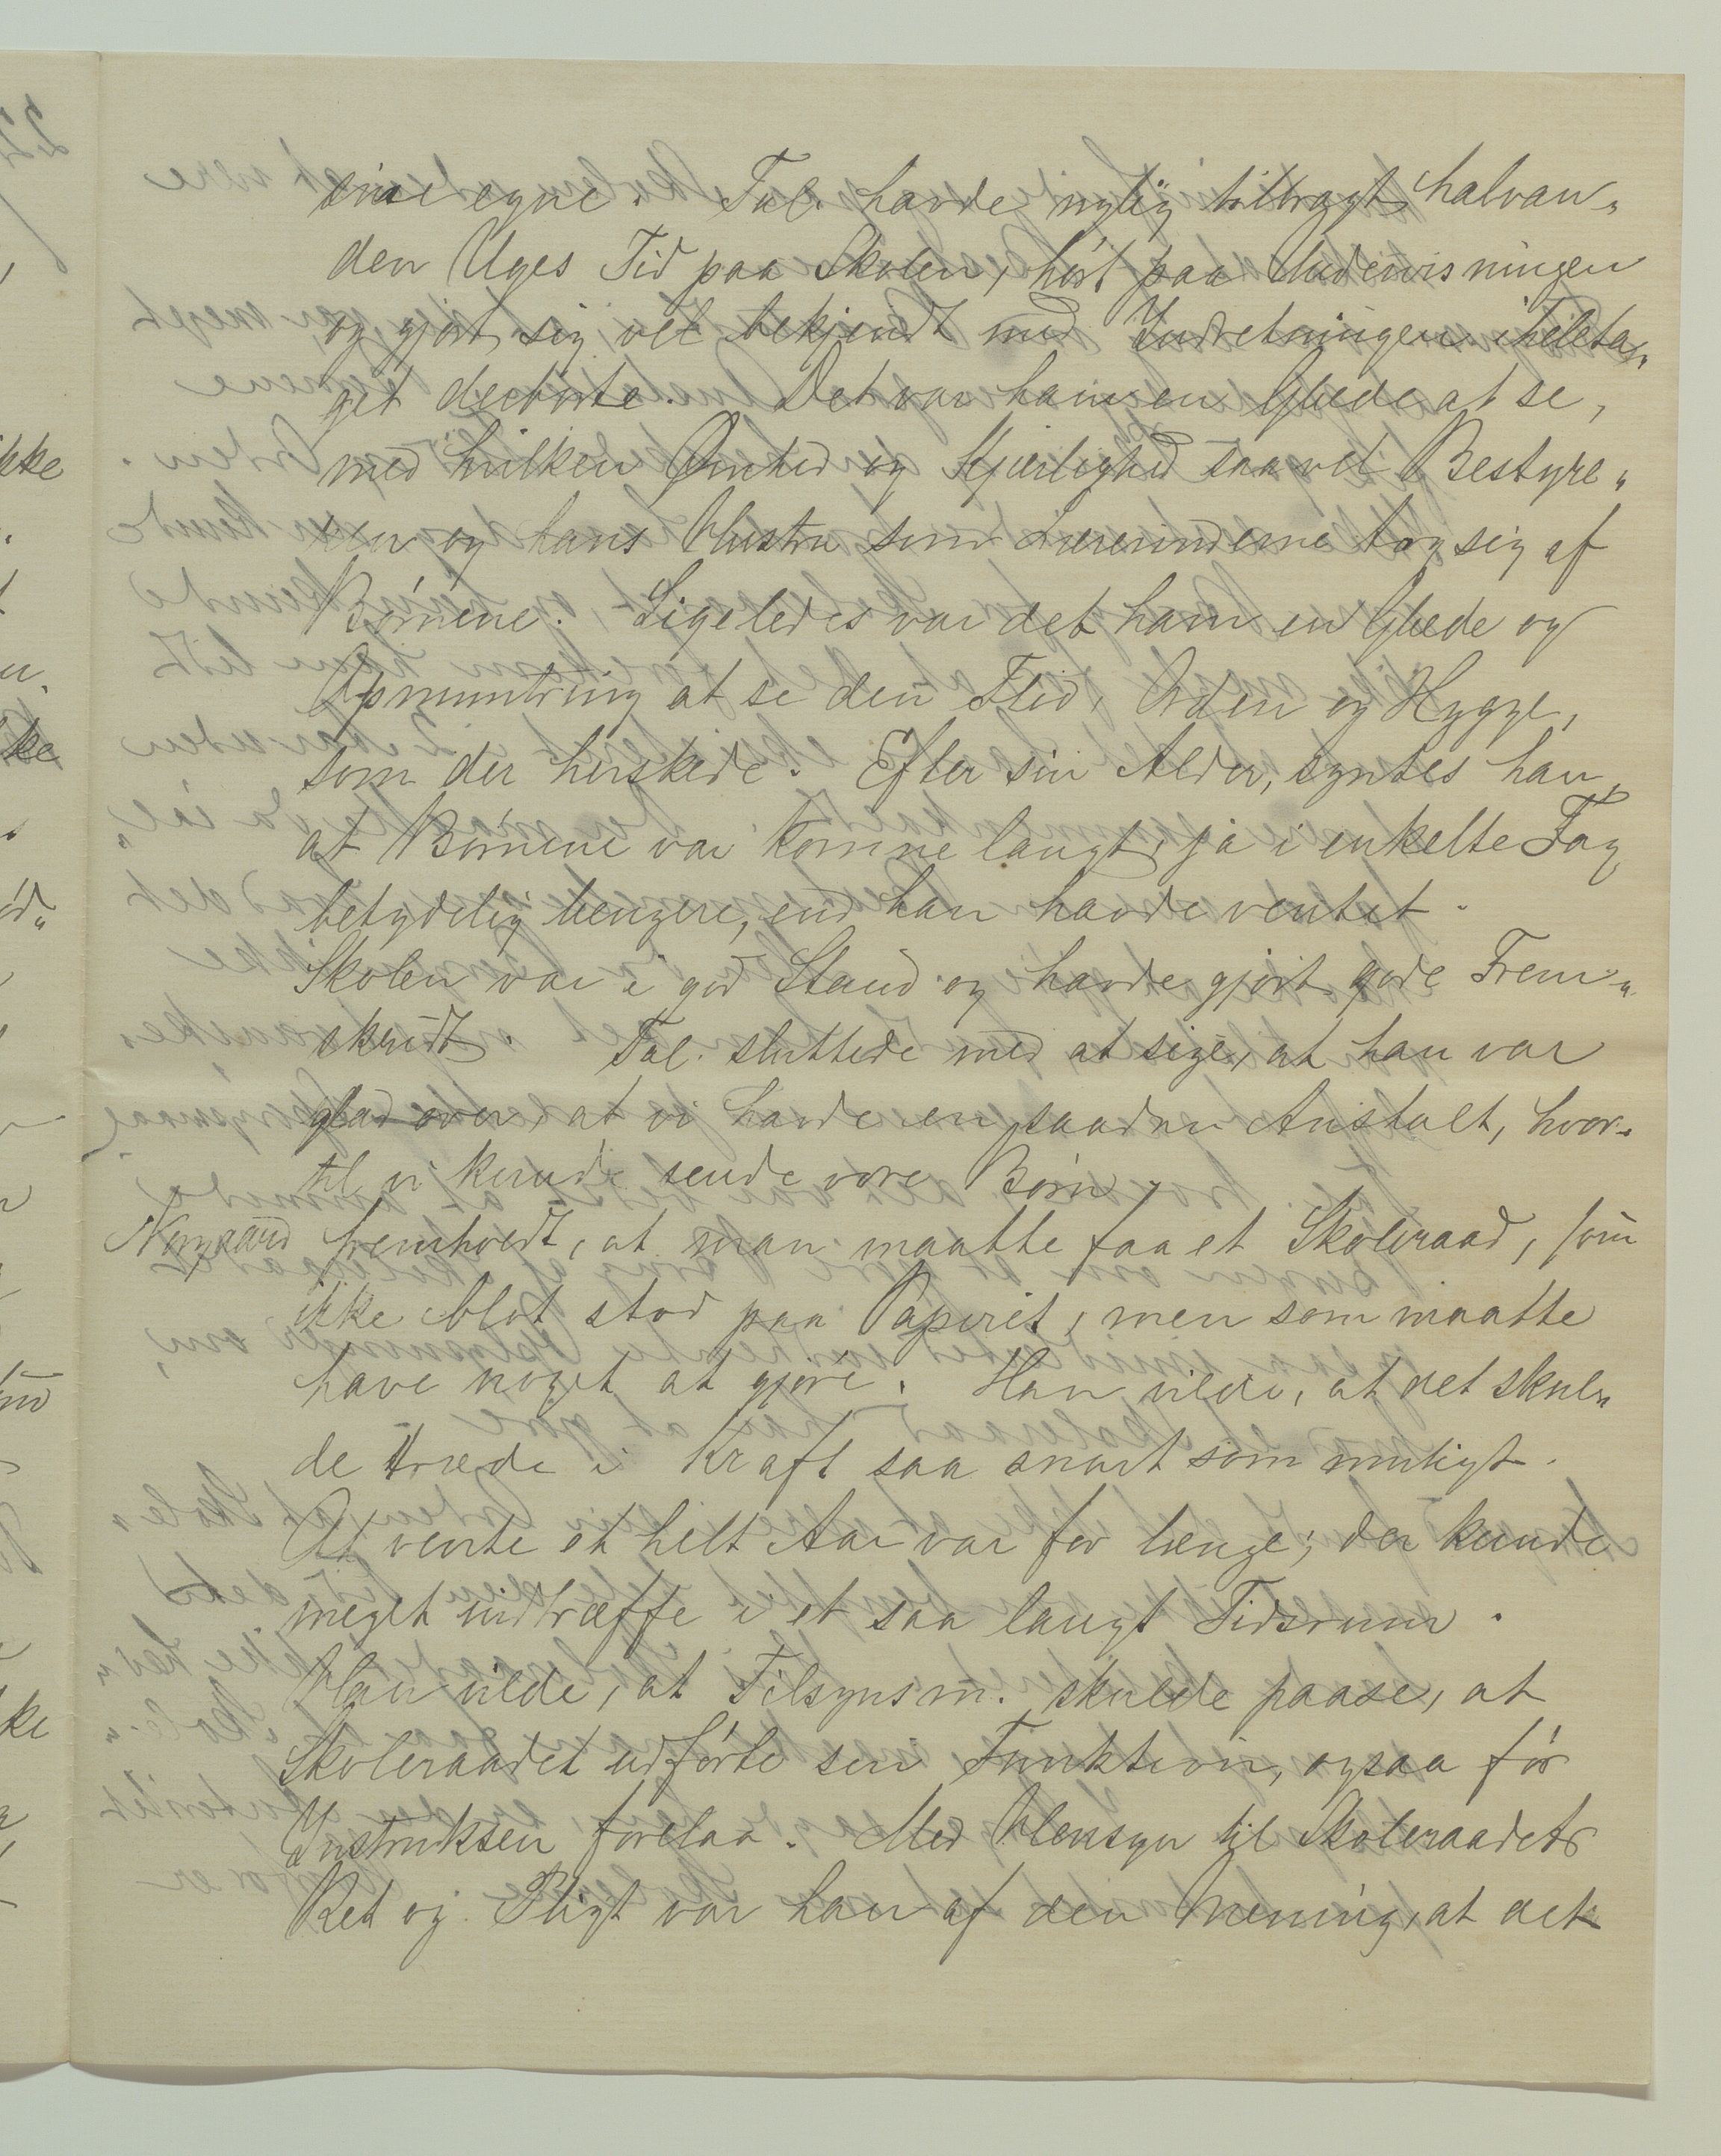 sine egne. Tal. havde nylig tilbragt halvan„
den Uges Tid paa Skolen, hørt paa Undervisningen
og gjort sig vel bekjendt med Indretningen iheleta„
get derborte. Det var ham en Glæde at se,
med hvilken Ømhed og Kjærlighed saavel Bestyre„
ren og hans Hustru som Lærerinderne tog sig af
Børnene. Ligeledes var det ham en Glæde og
Opmuntring at se den Flid, Orden og Hygge,
som der herskede. Efter sin Alder, syntes han,
at Børnene var komne langt, ja i enkelte Fag
betydelig længere, end han havde ventet.
Skolen var i god Stand og havde gjort gode Frem„
skridt. Tal. sluttede med at sige, at han var
glad over, at vi havde en saadan Anstalt, hvor„
til vi kunde sende vore Børn.
Nørgaard fremholdt, at man maatte faa et Skoleraad, som
ikke blot stod paa Papiret, men som maatte
have noget at gjøre. Han vilde, at det skul„
de træde i Kraft saa snart som muligt.
At vente et helt Aar var for længe; der kunde
meget indtræffe i et saa langt Tidsrum.
Han vilde, at Tilsynsm. skulde paase, at
Skoleraadet udførte sin Funktion, ogsaa før
Instruksen forelaa. Med Hensyn til Skoleraadets
Ret og Pligt var han af den Mening, at det